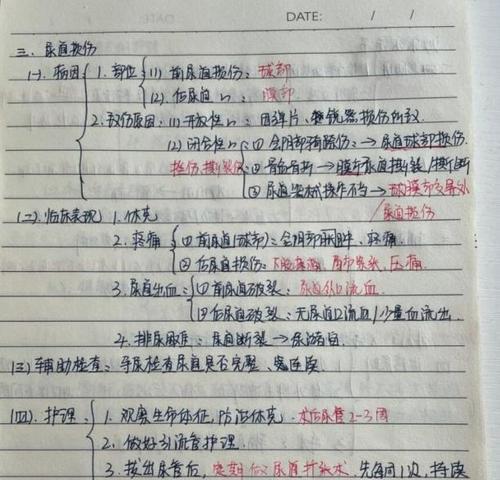 DATE: / /
三、尿道损伤
(一). 病因 1. 部位 (1) 前尿道损伤：球部
(2). 后尿道〃：膜部
2. 致伤原因：(1) 开放性〃：因弹片、锐器损伤所致.
(2) 闭合性〃：① 会阴部骑跨伤：→ 尿道球部损伤.
挫伤/撕裂伤 ② 骨盆骨折 → 膜部尿道撕裂/撕断
③ 尿道器械操作不当 → 球膜部交界处
尿道损伤
(二). 临床表现 1. 休克
2. 疼痛 ① 前尿道(球部)：会阴部肿胀、疼痛
② 后尿道损伤：下腹疼痛、局部肌紧、压痛
3. 尿道出血 ① 前尿道破裂：尿道外口流血.
② 后尿道破裂：无尿道口流血/少量血流出.
4. 排尿困难：尿道断裂 → 尿潴留.
(三) 辅助检查：导尿检查尿道是否完整、连续
(四). 护理： 1. 观察生命体征, 防治休克. 术后尿管2-3周
2. 做好引流管护理.
3. 拔出尿管后, 定期做尿道扩张术. 先每周1次, 持续